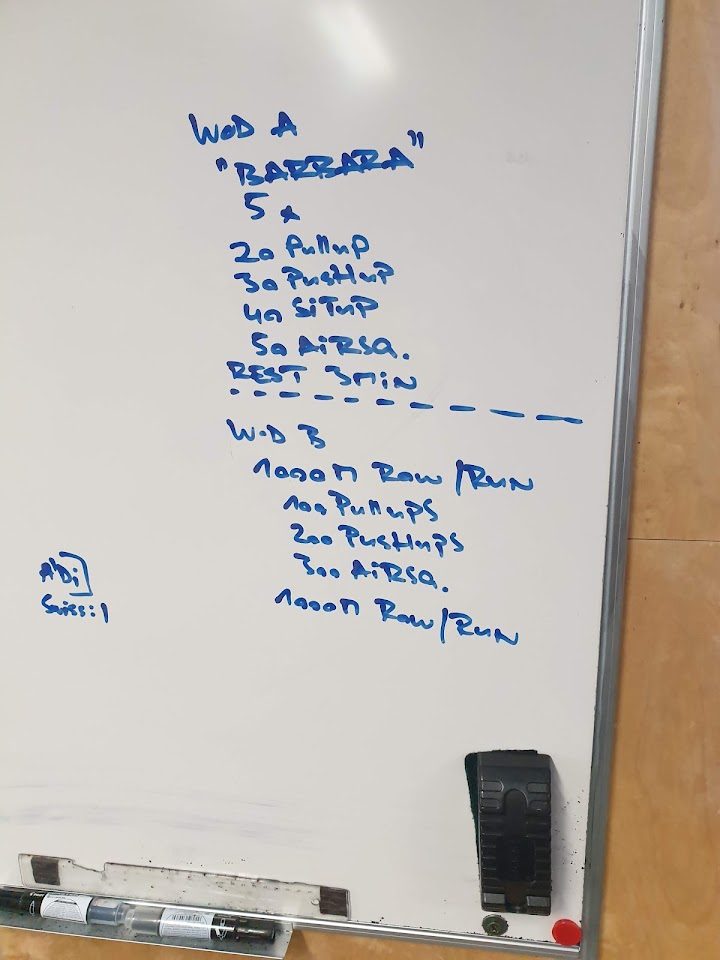 WOD A
"BARBARA"
5 x
20 Pullup
30 PusHup
40 SiTuP
50 AiRSQ.
REST 3MiN
WOD B
1000M Row/RuN
100 PullupS
200 PusHupS
300 AiRSQ.
1000M Row/RuN